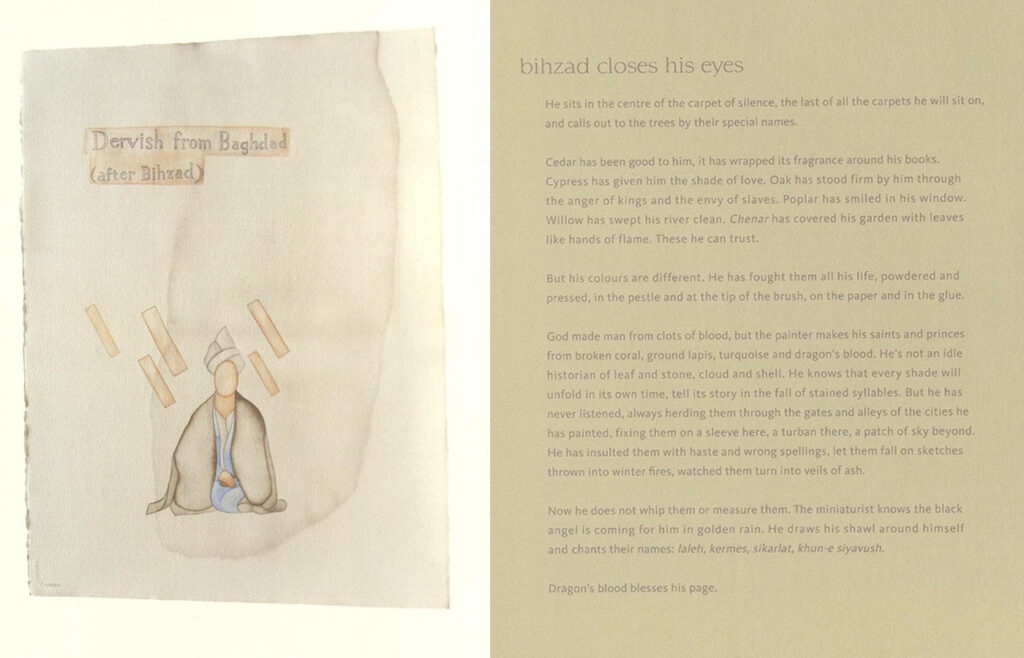 Dervish from Baghdad
(after Bihzad)
bihzad closes his eyes
He sits in the centre of the carpet of silence, the last of all the carpets he will sit on,
and calls out to the trees by their special names.
Cedar has been good to him, it has wrapped its fragrance around his books.
Cypress has given him the shade of love. Oak has stood firm by him through
the anger of kings and the envy of slaves. Poplar has smiled in his window.
Willow has swept his river clean. Chenar has covered his garden with leaves
like hands of flame. These he can trust.
But his colours are different. He has fought them all his life, powdered and
pressed, in the pestle and at the tip of the brush, on the paper and in the glue.
God made man from clots of blood, but the painter makes his saints and princes
from broken coral, ground lapis, turquoise and dragon's blood. He's not an idle
historian of leaf and stone, cloud and shell. He knows that every shade will
unfold in its own time, tell its story in the fall of stained syllables. But he has
never listened, always herding them through the gates and alleys of the cities he
has painted, fixing them on a sleeve here, a turban there, a patch of sky beyond.
He has insulted them with haste and wrong spellings, let them fall on sketches
thrown into winter fires, watched them turn into veils of ash.
Now he does not whip them or measure them. The miniaturist knows the black
angel is coming for him in golden rain. He draws his shawl around himself
and chants their names: laleh, kermes, sikarlat, khun-e siyavush.
Dragon's blood blesses his page.